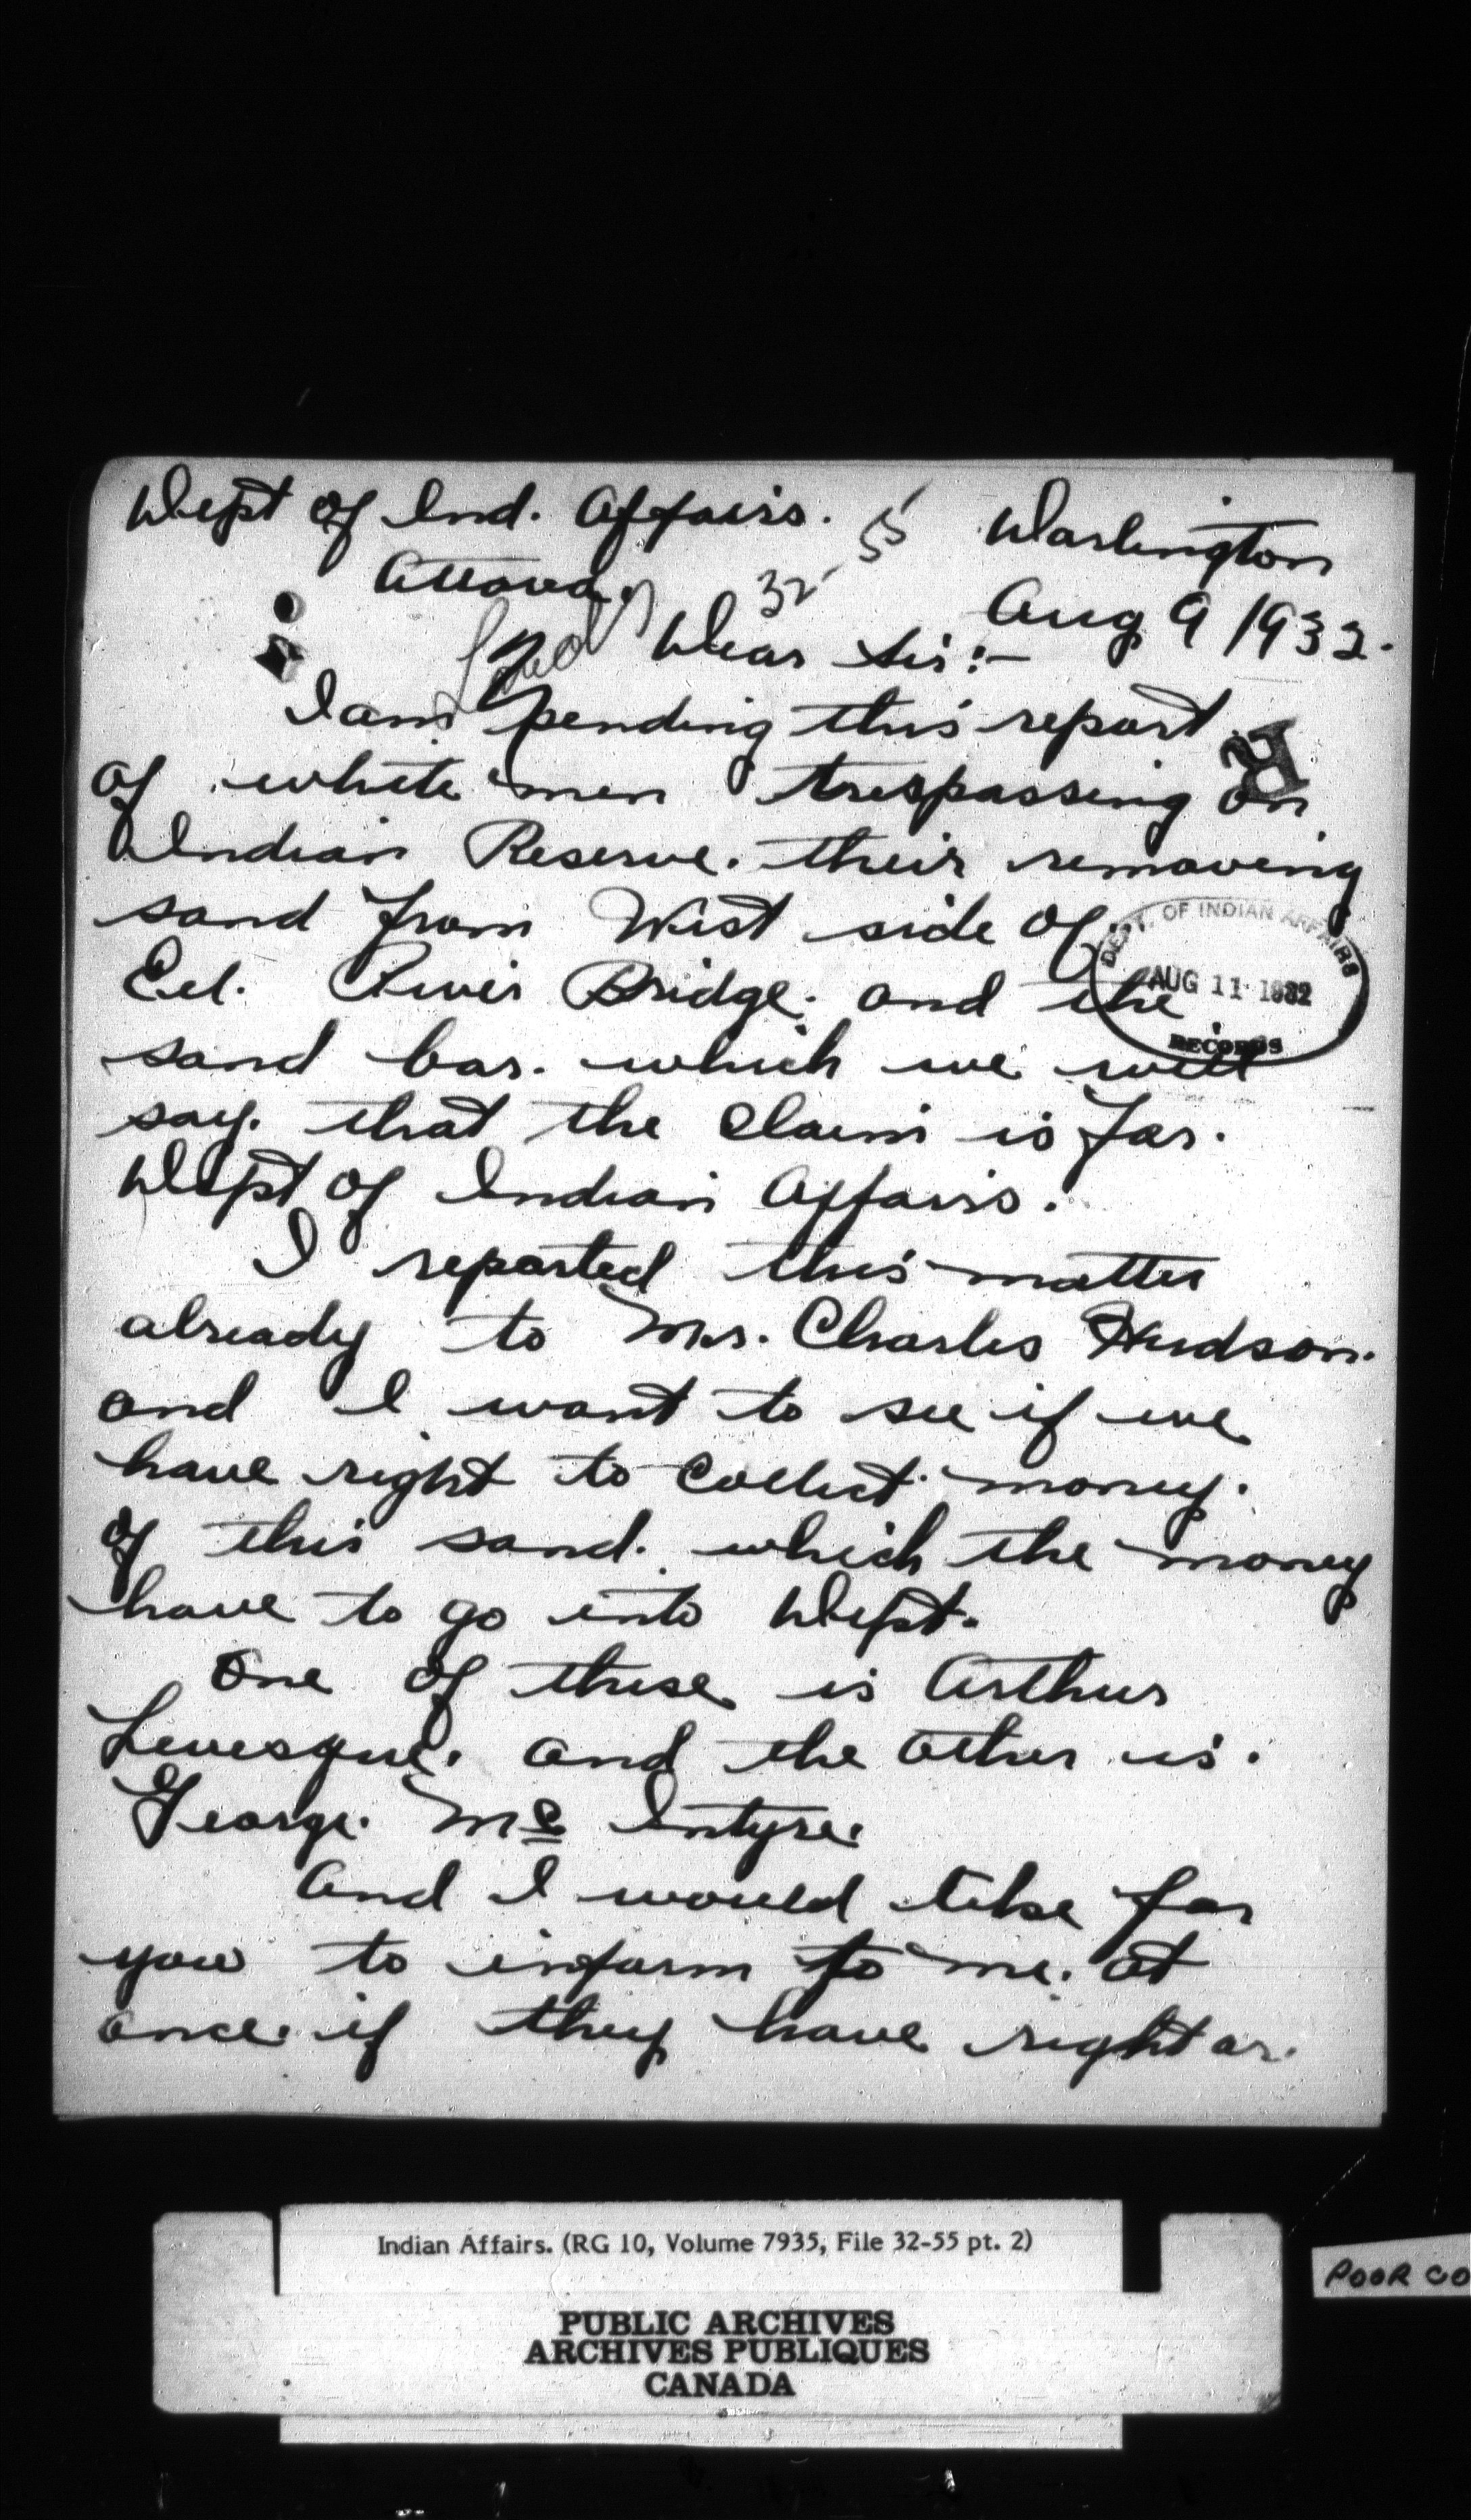 Dept of Ind. Affairs.
Darlington
Ottawa.
32-55
Aug 9 1932.
Dear Sir:-
I am sending this report
R
of white men trespassing on
Indian Reserve. their removing
sand from West side of
DEPT. OF INDIAN AFFAIRS
AUG 11 1932
RECORDS
Eel. River Bridge. and the
sand bar. which we will
say. that the claim is for.
Dept of Indian Affairs.
I reported this matter
already to Mr. Charles Hudson.
and I want to see if we
have right to collect money.
of this sand. which the money
have to go into Dept.
One of these is Arthur
Levesque. and the other is.
George. Mc Intyre.
And I would like for
you to inform to me. at
once. if they have right or.
Indian Affairs. (RG 10, Volume 7935, File 32-55 pt. 2)
POOR CO
PUBLIC ARCHIVES
ARCHIVES PUBLIQUES
CANADA